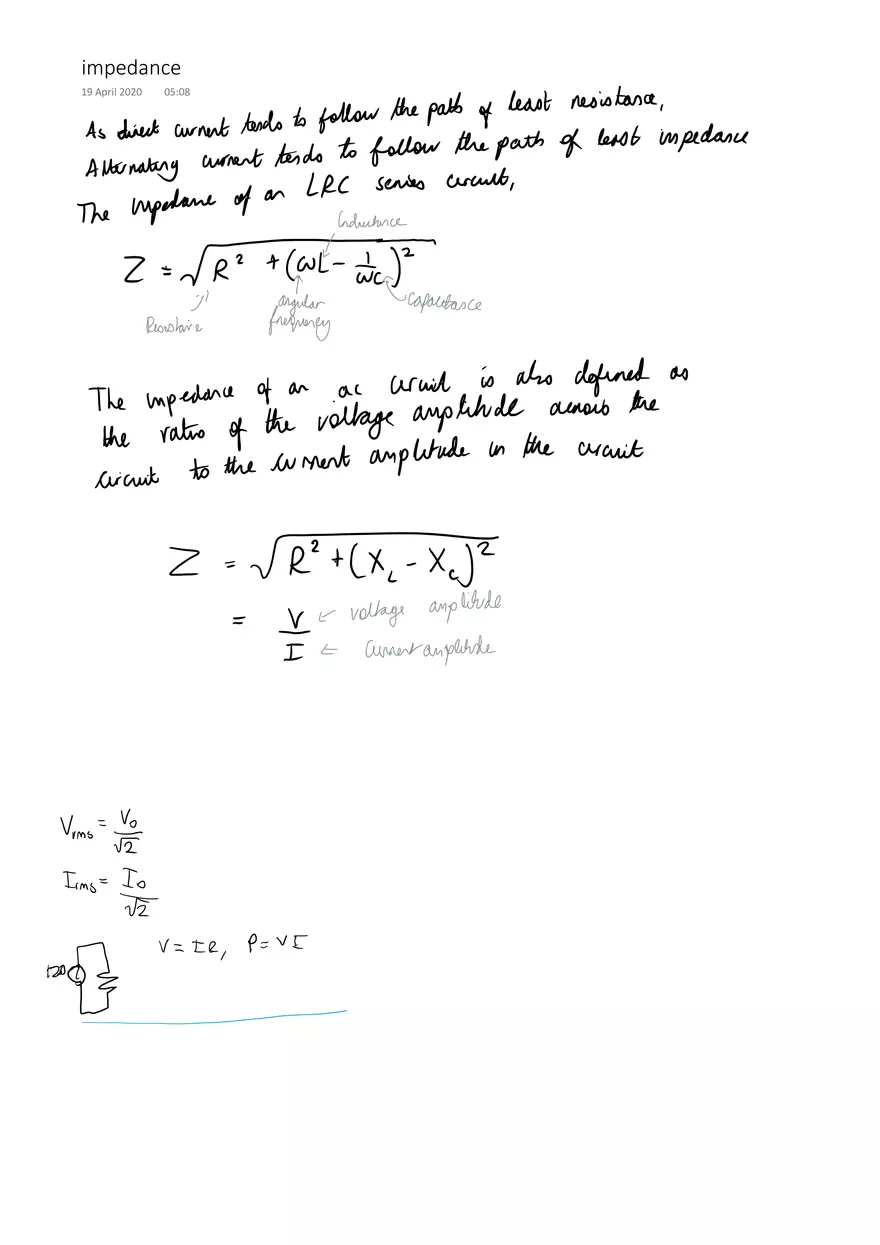 impedance
19 April 2020 05:08
As direct current tends to follow the path of least resistance,
Alternating current tends to follow the path of least impedance
The impedance of an LRC series circuit,
Inductance
Z = √(R² + (ωL - 1/ωC)²)
Resistance
angular frequency
Capacitance
The impedance of an ac circuit is also defined as
the ratio of the voltage amplitude across the
circuit to the current amplitude in the circuit
Z = √(R² + (X_L - X_C)²)
= V/I
← voltage amplitude
← Current amplitude
V_rms = V_0/√2
I_rms = I_0/√2
V = IR, P = VI
120